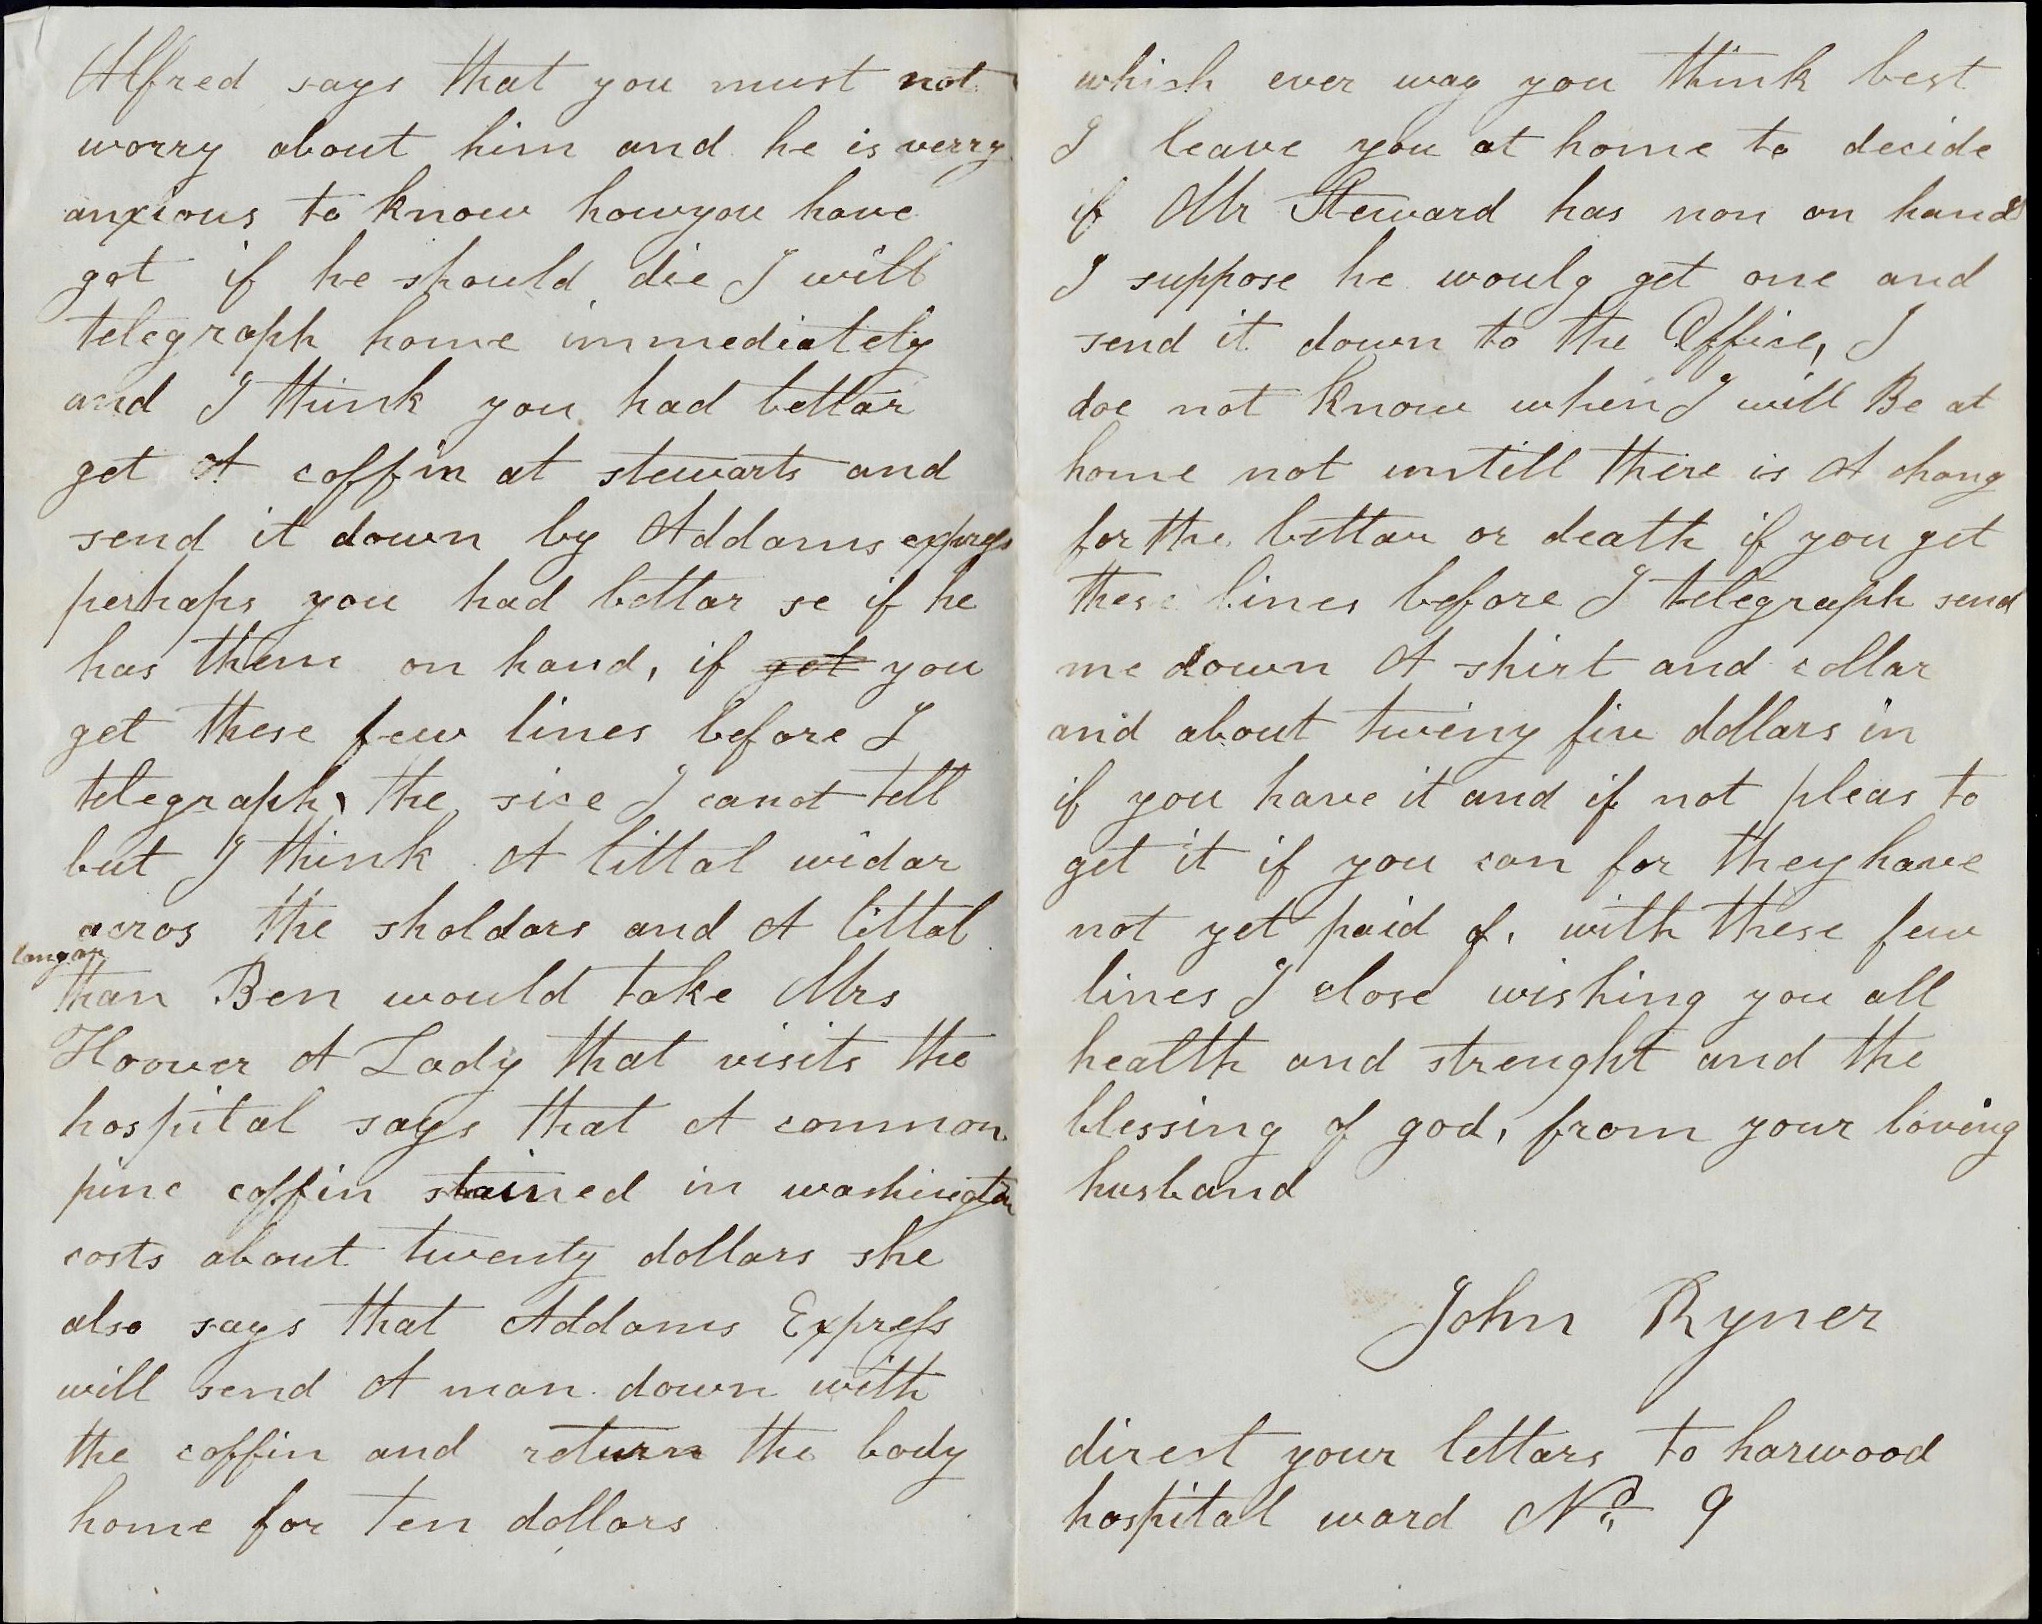 Alfred says that you must not
worry about him and he is verry
anxious to know how you have
got if he should die I will
telegraph home immediately
and I think you had bettar
get A coffin at stewarts and
send it down by Addams express
perhaps you had bettar se if he
has them on hand, if get you
get these few lines before I
telegraph, the sise I canot tell
but I think A littal widar
acros the sholdars and A littal
longar
than Ben would take Mrs
Hoover A Lady that visits the
hospital says that A common
pine coffin stained in washington
costs about twenty dollars she
also says that Addams Express
will send A man down with
the coffin and return the body
home for ten dollars
which ever way you think best
I leave you at home to decide
if Mr Steward has non on hand
I suppose he woulg get one and
send it down to the Office, I
doe not know when I will Be at
home not untill there is A chang
for the bettar or death if you get
these lines before I telegraph send
me down A shirt and collar
and about tweny five dollars in
if you have it and if not pleas to
get it if you can for they have
not yet paid of, with these few
lines I close wishing you all
health and strenght and the
blessing of god, from your loving
husband
John Ryner
direct your lettars to harwood
hospital ward No. 9